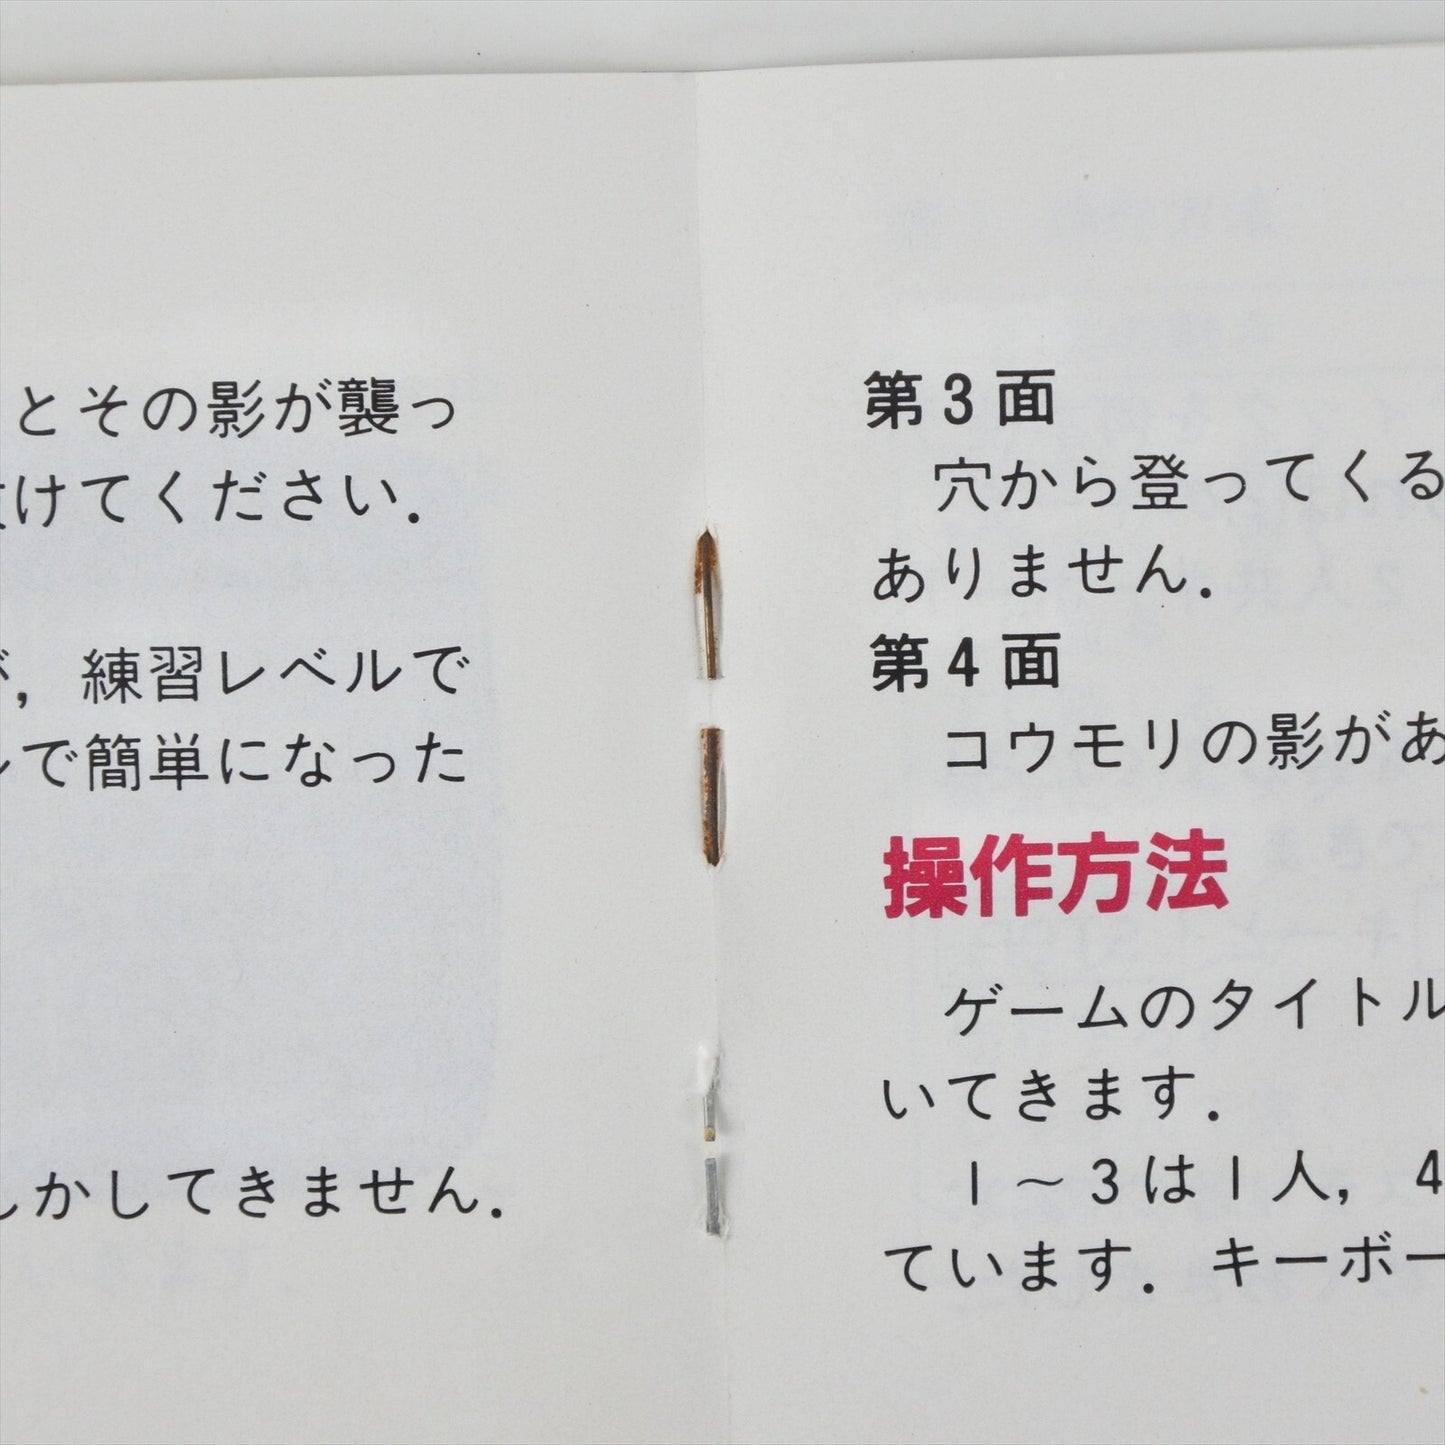 とその影が襲っ
けてください．
，練習レベルで
で簡単になった
しかしてきません．
第3面
穴から登ってくる
ありません．
第4面
コウモリの影があ
操作方法
ゲームのタイトル
いてきます．
1～3は1人，4
ています．キーボー